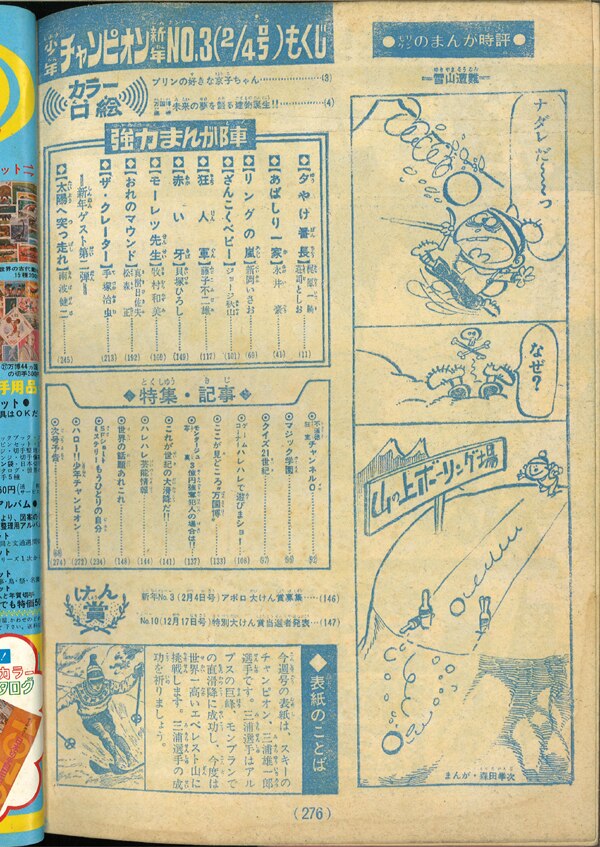 少年チャンピオン新年NO.3(2/4日号)もくじ
カラー口絵
プリンの好きな京子ちゃん……(3)
万国博画報 未来の夢を創る建物誕生!!……(4)
強力まんが陣
◆夕やけ番長 梶原一騎 荘司としお……(11)
◆あばしり一家 永井豪……(41)
◆リングの嵐 新岡いさお……(69)
◆ざんこくベビー ジョージ秋山……(101)
◆狂人軍 藤子不二雄……(117)
◆赤い牙 貝塚ひろし……(149)
◆モーレツ先生 牧村和美……(169)
◆おれのマウンド 真樹日佐夫 松森正……(192)
◆ザ・クレーター 手塚治虫……(213)
=新年ゲスト第二弾=
◆太陽へ突っ走れ 南波健二……(245)
◆特集・記事◆
とくしゅう・きじ
チャンネルO……(92)
マジック学園……(96)
クイズ21世紀……(97)
ゲームコーナー ハレハレで遊びまショー……(108)
ここが見どころ"万国博"……(133)
3億円強奪犯人の場合は!!……(137)
これが世紀の大滑降だ!!……(141)
ハレハレ芸能情報……(144)
世界の話題あれこれ……(148)
SFショートミステリー もうひとりの自分……(234)
ハロー!!少年チャンピオン……(272)
次号予告……(274)
けん賞
新年No.3(2月4日号)アポロ大けん賞募集……(146)
No.10(12月17日号)特別大けん賞当選者発表…(147)
◆表紙のことば
今週号の表紙は、スキーの
チャンピオン、三浦雄一郎
選手です。三浦選手はアル
プスの巨峰、モンブランで
の直滑降に成功し、今度は
世界一高いエベレスト山に
挑戦します。三浦選手の成
功を祈りましょう。
●モリケンのまんが時評●
ゆきやまそうなん
=雪山遭難=
ナダレだ〜〜っ
なぜ?
山の上ボーリング場
まんが・森田拳次
(276)
世界の古代
万博44カ国
手用品
ット●
具はOKだ
アルバム●
ット
でも特価
カラー
タログ